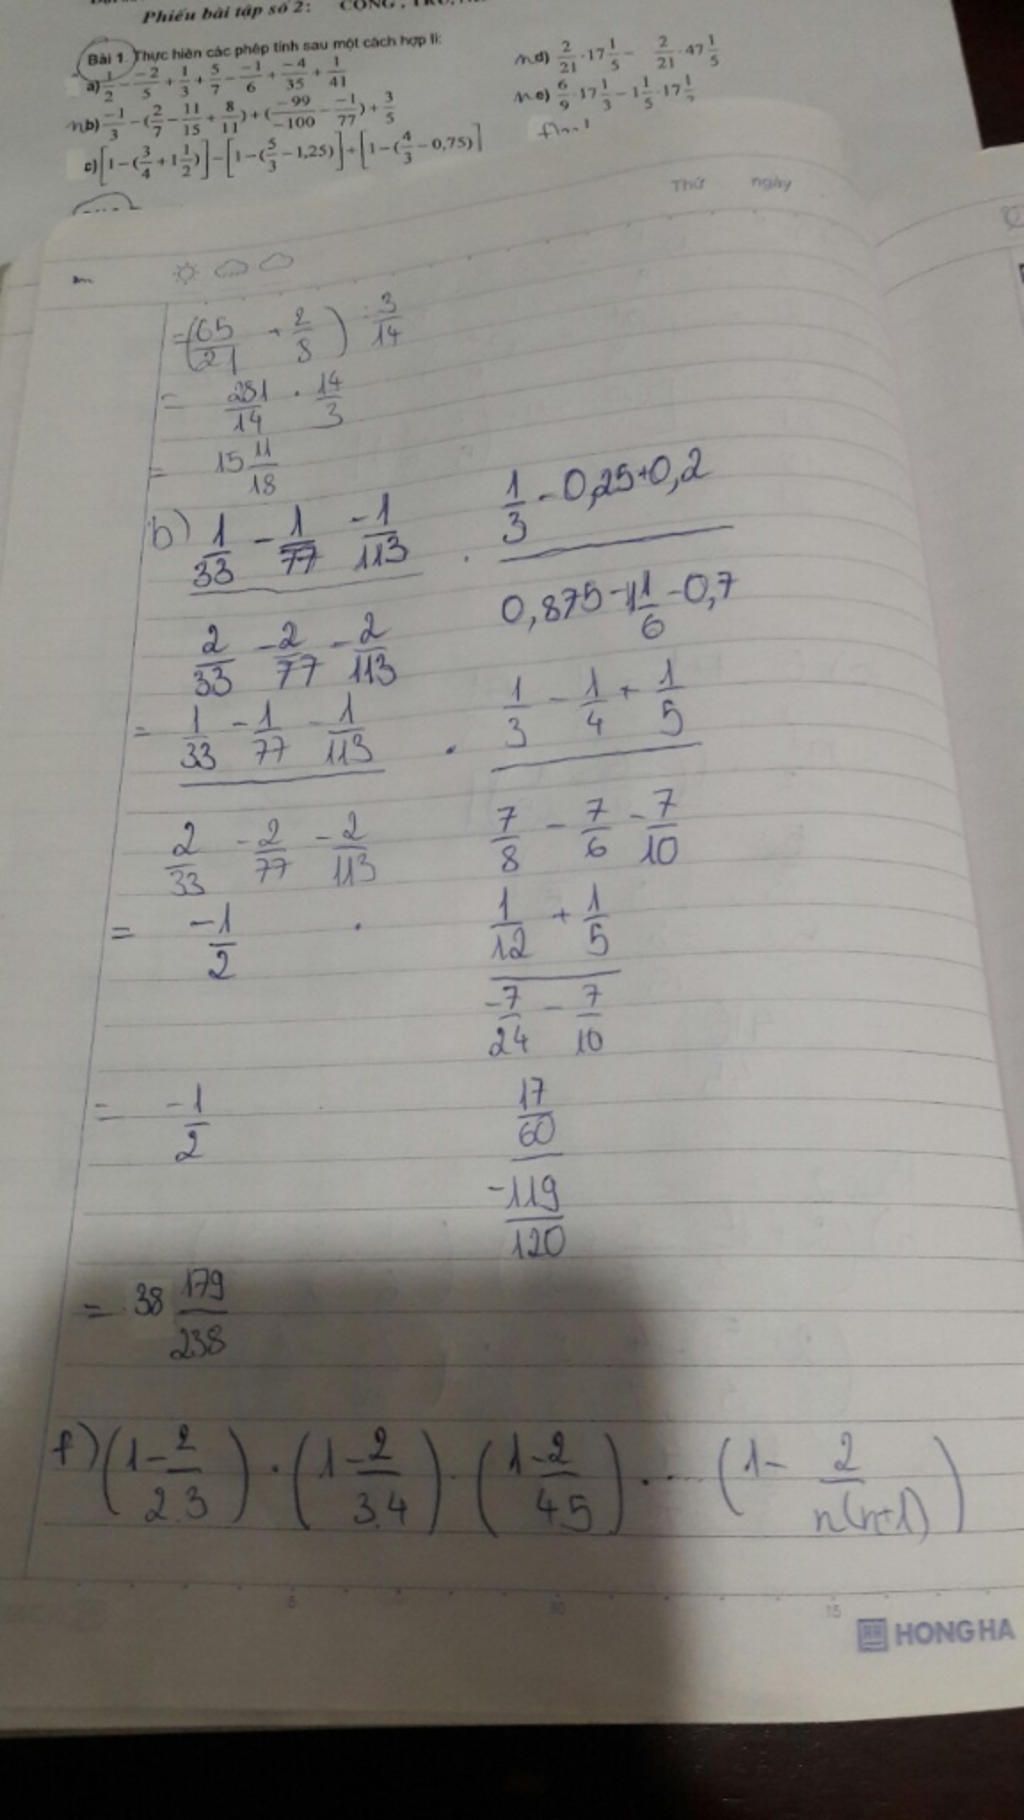 Phiếu bài tập số 2: CỘNG, TRỪ,
Bài 1. Thực hiện các phép tính sau một cách hợp lí:
a) 1/2 - -2/5 + 1/3 + 5/7 - -1/6 + -4/35 + 1/41
nb) -1/3 - (2/7 - 11/15 + 8/11) + (-99/-100 - -1/77) + 3/5
c) [1 - (3/4 + 1 1/2)] - [1 - (5/3 - 1,25)] + [1 - (4/3 - 0,75)]
nd) 2/21 . 17 1/5 - 2/21 . 47 1/5
ne) 6/9 . 17 1/3 - 1 1/5 . 17 1/
Thứ ngày
= (65/21 + 2/8) : 3/14
= 281/14 . 14/3
= 15 11/18
b) (1/33 - 1/77 - 1/113)/(2/33 - 2/77 - 2/113) . (1/3 - 0,25 + 0,2)/(0,875 - 1 1/6 - 0,7)
= (1/33 - 1/77 - 1/113)/(2/33 - 2/77 - 2/113) . (1/3 - 1/4 + 1/5)/(7/8 - 7/6 - 7/10)
= -1/2 . (1/12 + 1/5)/(-7/24 - 7/10)
= -1/2 . (17/60)/(-119/120)
= 38 179/238
f) (1 - 2/2.3) . (1 - 2/3.4) . (1 - 2/4.5) . ... (1 - 2/n(n+1))
5 10 15
HONG HA